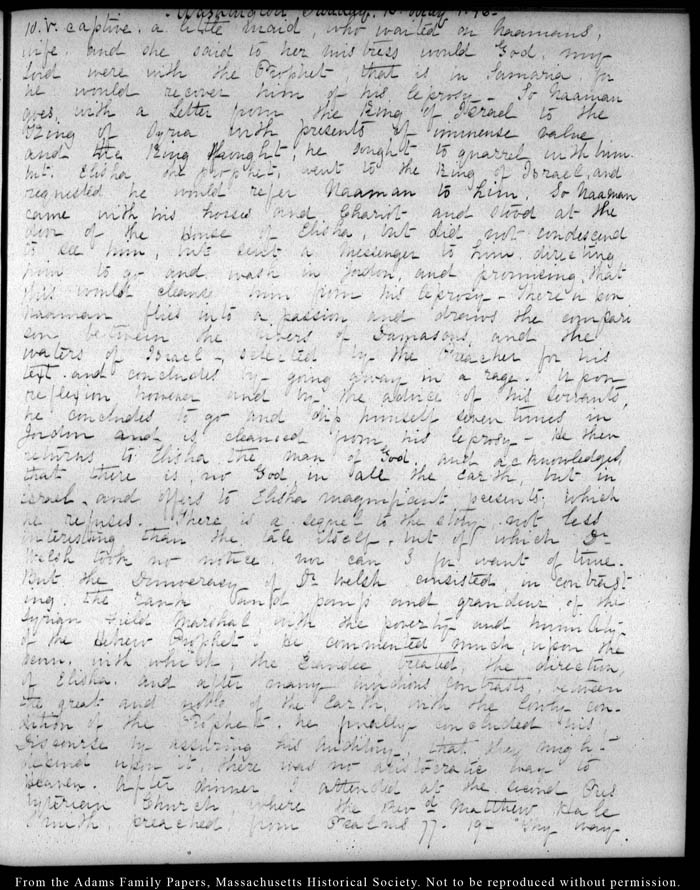 Washington Sunday.
10. V. captive. a little maid, who waited on Naamans,
wife. and she said to her mistress would God, my
Lord were with the Prophet, that is in Samaria for
he would recover him of his leprosy - So Naaman
goes, with a Letter from the King of Israel to the
King of Syria with presents of immense value
and the King thought, he sought to quarrel with him.
but Elisha the prophet, went to the King of Israel, and
requested he would refer Naaman to him. So Naaman
came with his horses and Chariot and stood at the
door of the House of Elisha, but did not condescend
to see him, but sent a Messenger to him directing
him to go and wash in Jordon, and promising, that
this would cleanse him from his leprosy - Thereupon
Naaman flies into a passion and draws the compari
son between the rivers of Damascus, and the
waters of Israel, selected by the Preacher for his
text. and concludes by going away in a rage. Upon
reflexion however and by the advice of his servants,
he concludes to go and dip himself seven times in
Jordon and is cleansed from his leprosy - He then
returns to Elisha the man of God and acknowledged,
that there is no God, in all the Earth, but in
Israel, and offers to Elisha magnificent presents, which
he refuses. There is a sequel to the story not less
interesting than the tale itself, but of which Dr
Welsh took no notice. nor can I for want of time.
But the Democracy of Dr Welsh consisted in contrast
ing. the rank and pomp and grandeur of the
Syrian Field Marshal with the poverty and humility
of the Hebrew Prophet! He commented much, upon the
with which, the treated, the direction,
of Elisha. and after many contrasts, between
the great and noble of the Earth, with the lowly con-
dition of the Prophet. he finally concluded his
Discourse by assuring his Auditory, that they might
depend upon it, there was no aristocratic way to
Heaven. After dinner I attended at the second Pres
byterian Church where the Revd Matthew Hale
Smith, preached from Psalms 77. 19. Thy way.
From the Adams Family Papers, Massachusetts Historical Society. Not to be reproduced without permission.